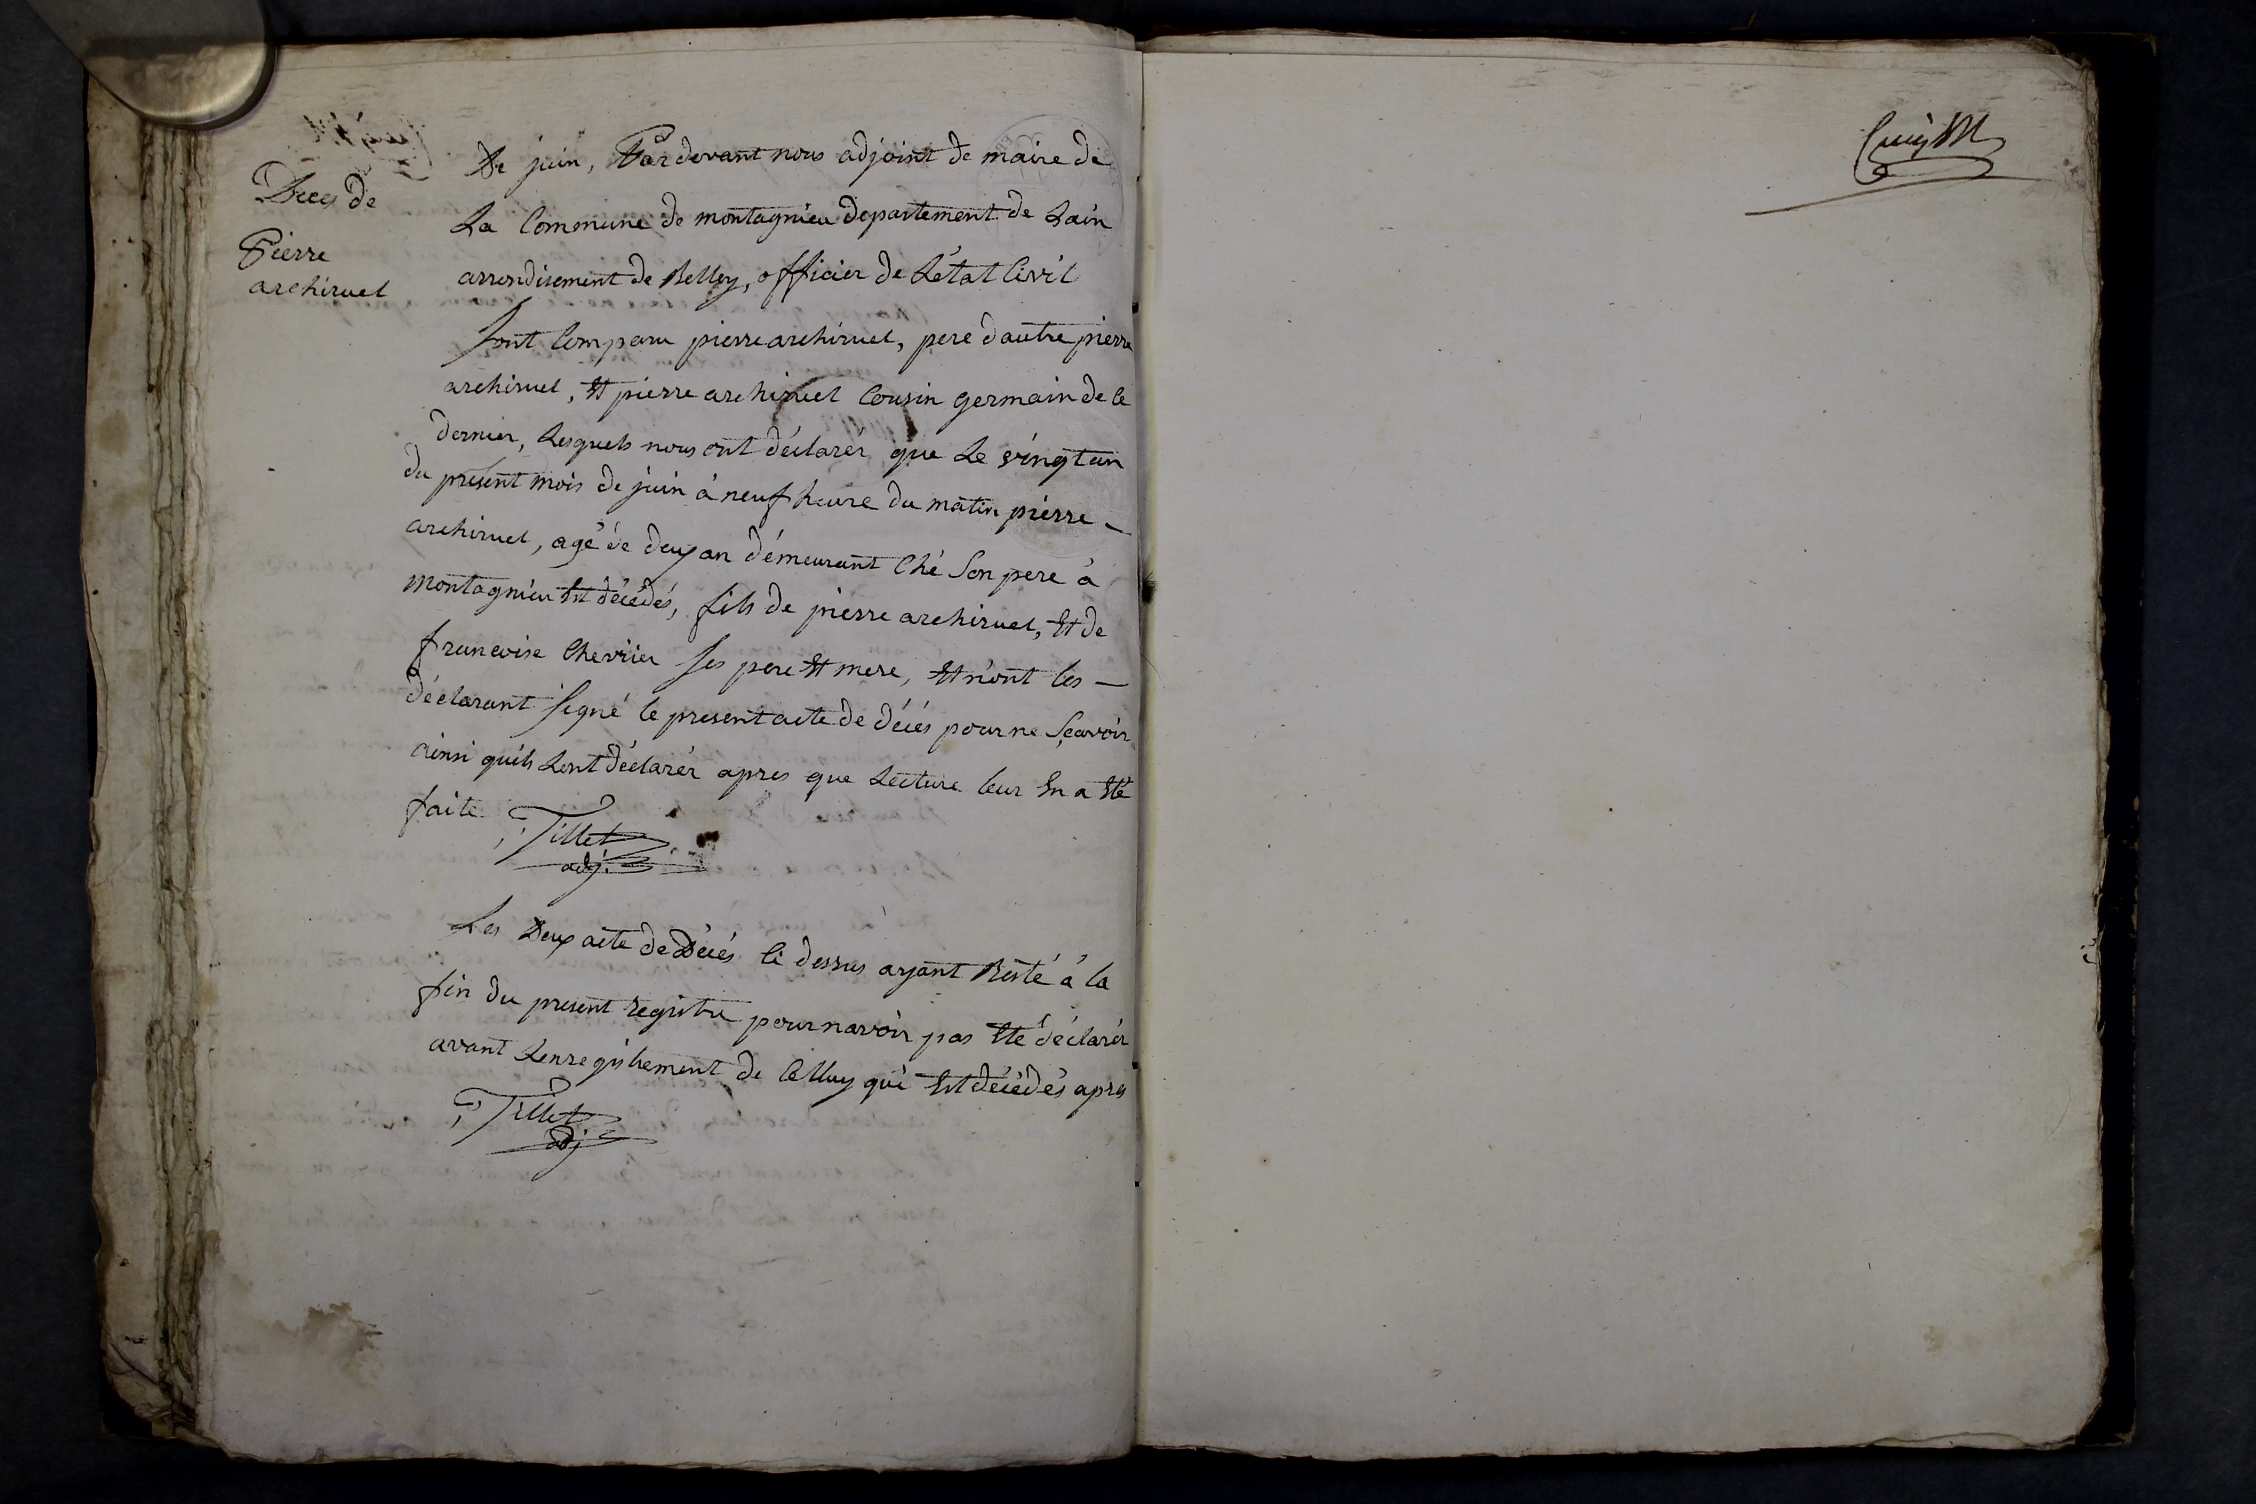 Décés de
Pierre
archiruel
De juin, Pardevant nous adjoint de maire de
La Commune de montagnieu departement de Lain
arrondisement de Belley, officier de Létat Civil
Sont Comparu pierre archiruel, pere dautre pierre
archiruel, Et pierre archiruel Cousin germain de Ce
dernier, Lesquels nous ont déclarér que Le vingt un
du présent mois de juin à neuf heure du matin pierre
archiruel, agé de deux an démeurant Ché Son pere à
montagnieu Est décédés, fils de pierre archiruel, Et de
francoise Chevrier Ses pere Et mere, Et n'ont les
déclarant Signé le present acte de décés pour ne Sçavoir
ainsi quils Lont déclarér apres que Lecture leur En a Eté
faite
Tillet
adj.
Les Deux acte de Décés Ci dessus ayant Resté à la
fin du present registre pour navoir pas Eté déclarér
avant Lenregistrement de Celluy qui Est décédés apres
Tillet
adj